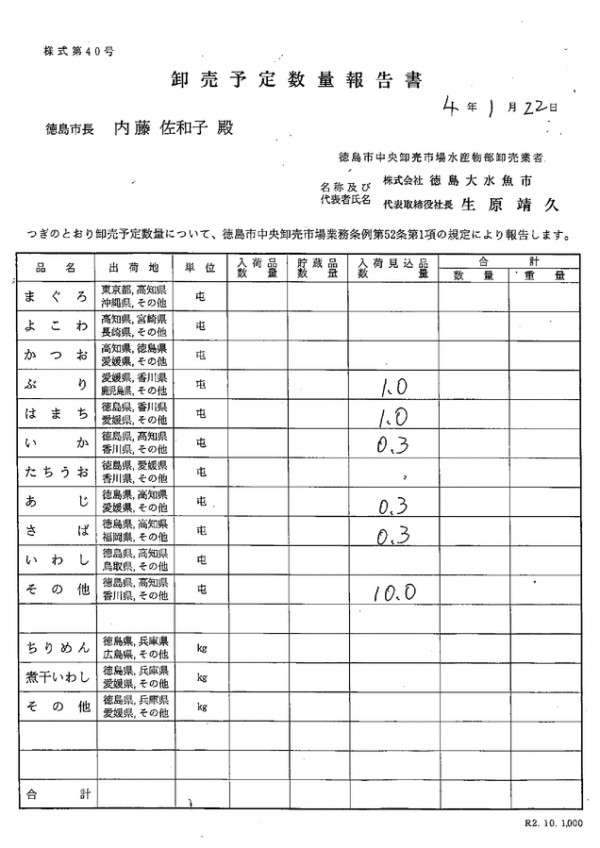 様式第40号
卸売予定数量報告書
4年1月22日
徳島市長 内藤 佐和子 殿
徳島市中央卸売市場水産物部卸売業者
名称及び 株式会社 徳島大水魚市
代表者氏名 代表取締役社長 生原靖久
つぎのとおり卸売予定数量について、徳島市中央卸売市場業務条例第52条第1項の規定により報告します。
品名 出荷地 単位 入荷品数量 貯蔵品数量 入荷見込品数量 合計
数量 重量
まぐろ 東京都, 高知県 屯
沖縄県, その他
よこわ 高知県, 宮崎県 屯
長崎県, その他
かつお 高知県, 徳島県 屯
愛媛県, その他
ぶり 愛媛県, 香川県 屯 1.0
鹿児島県, その他
はまち 徳島県, 香川県 屯 1.0
愛媛県, その他
いか 徳島県, 高知県 屯 0.3
香川県, その他
たちうお 徳島県, 愛媛県 屯
香川県, その他
あじ 徳島県, 高知県 屯 0.3
愛媛県, その他
さば 徳島県, 高知県 屯 0.3
福岡県, その他
いわし 徳島県, 高知県 屯
鳥取県, その他
その他 徳島県, 高知県 屯 10.0
香川県, その他
ちりめん 徳島県, 兵庫県 kg
広島県, その他
煮干いわし 徳島県, 兵庫県 kg
愛媛県, その他
その他 徳島県, 兵庫県 kg
愛媛県, その他
合計
R2.10.1,000